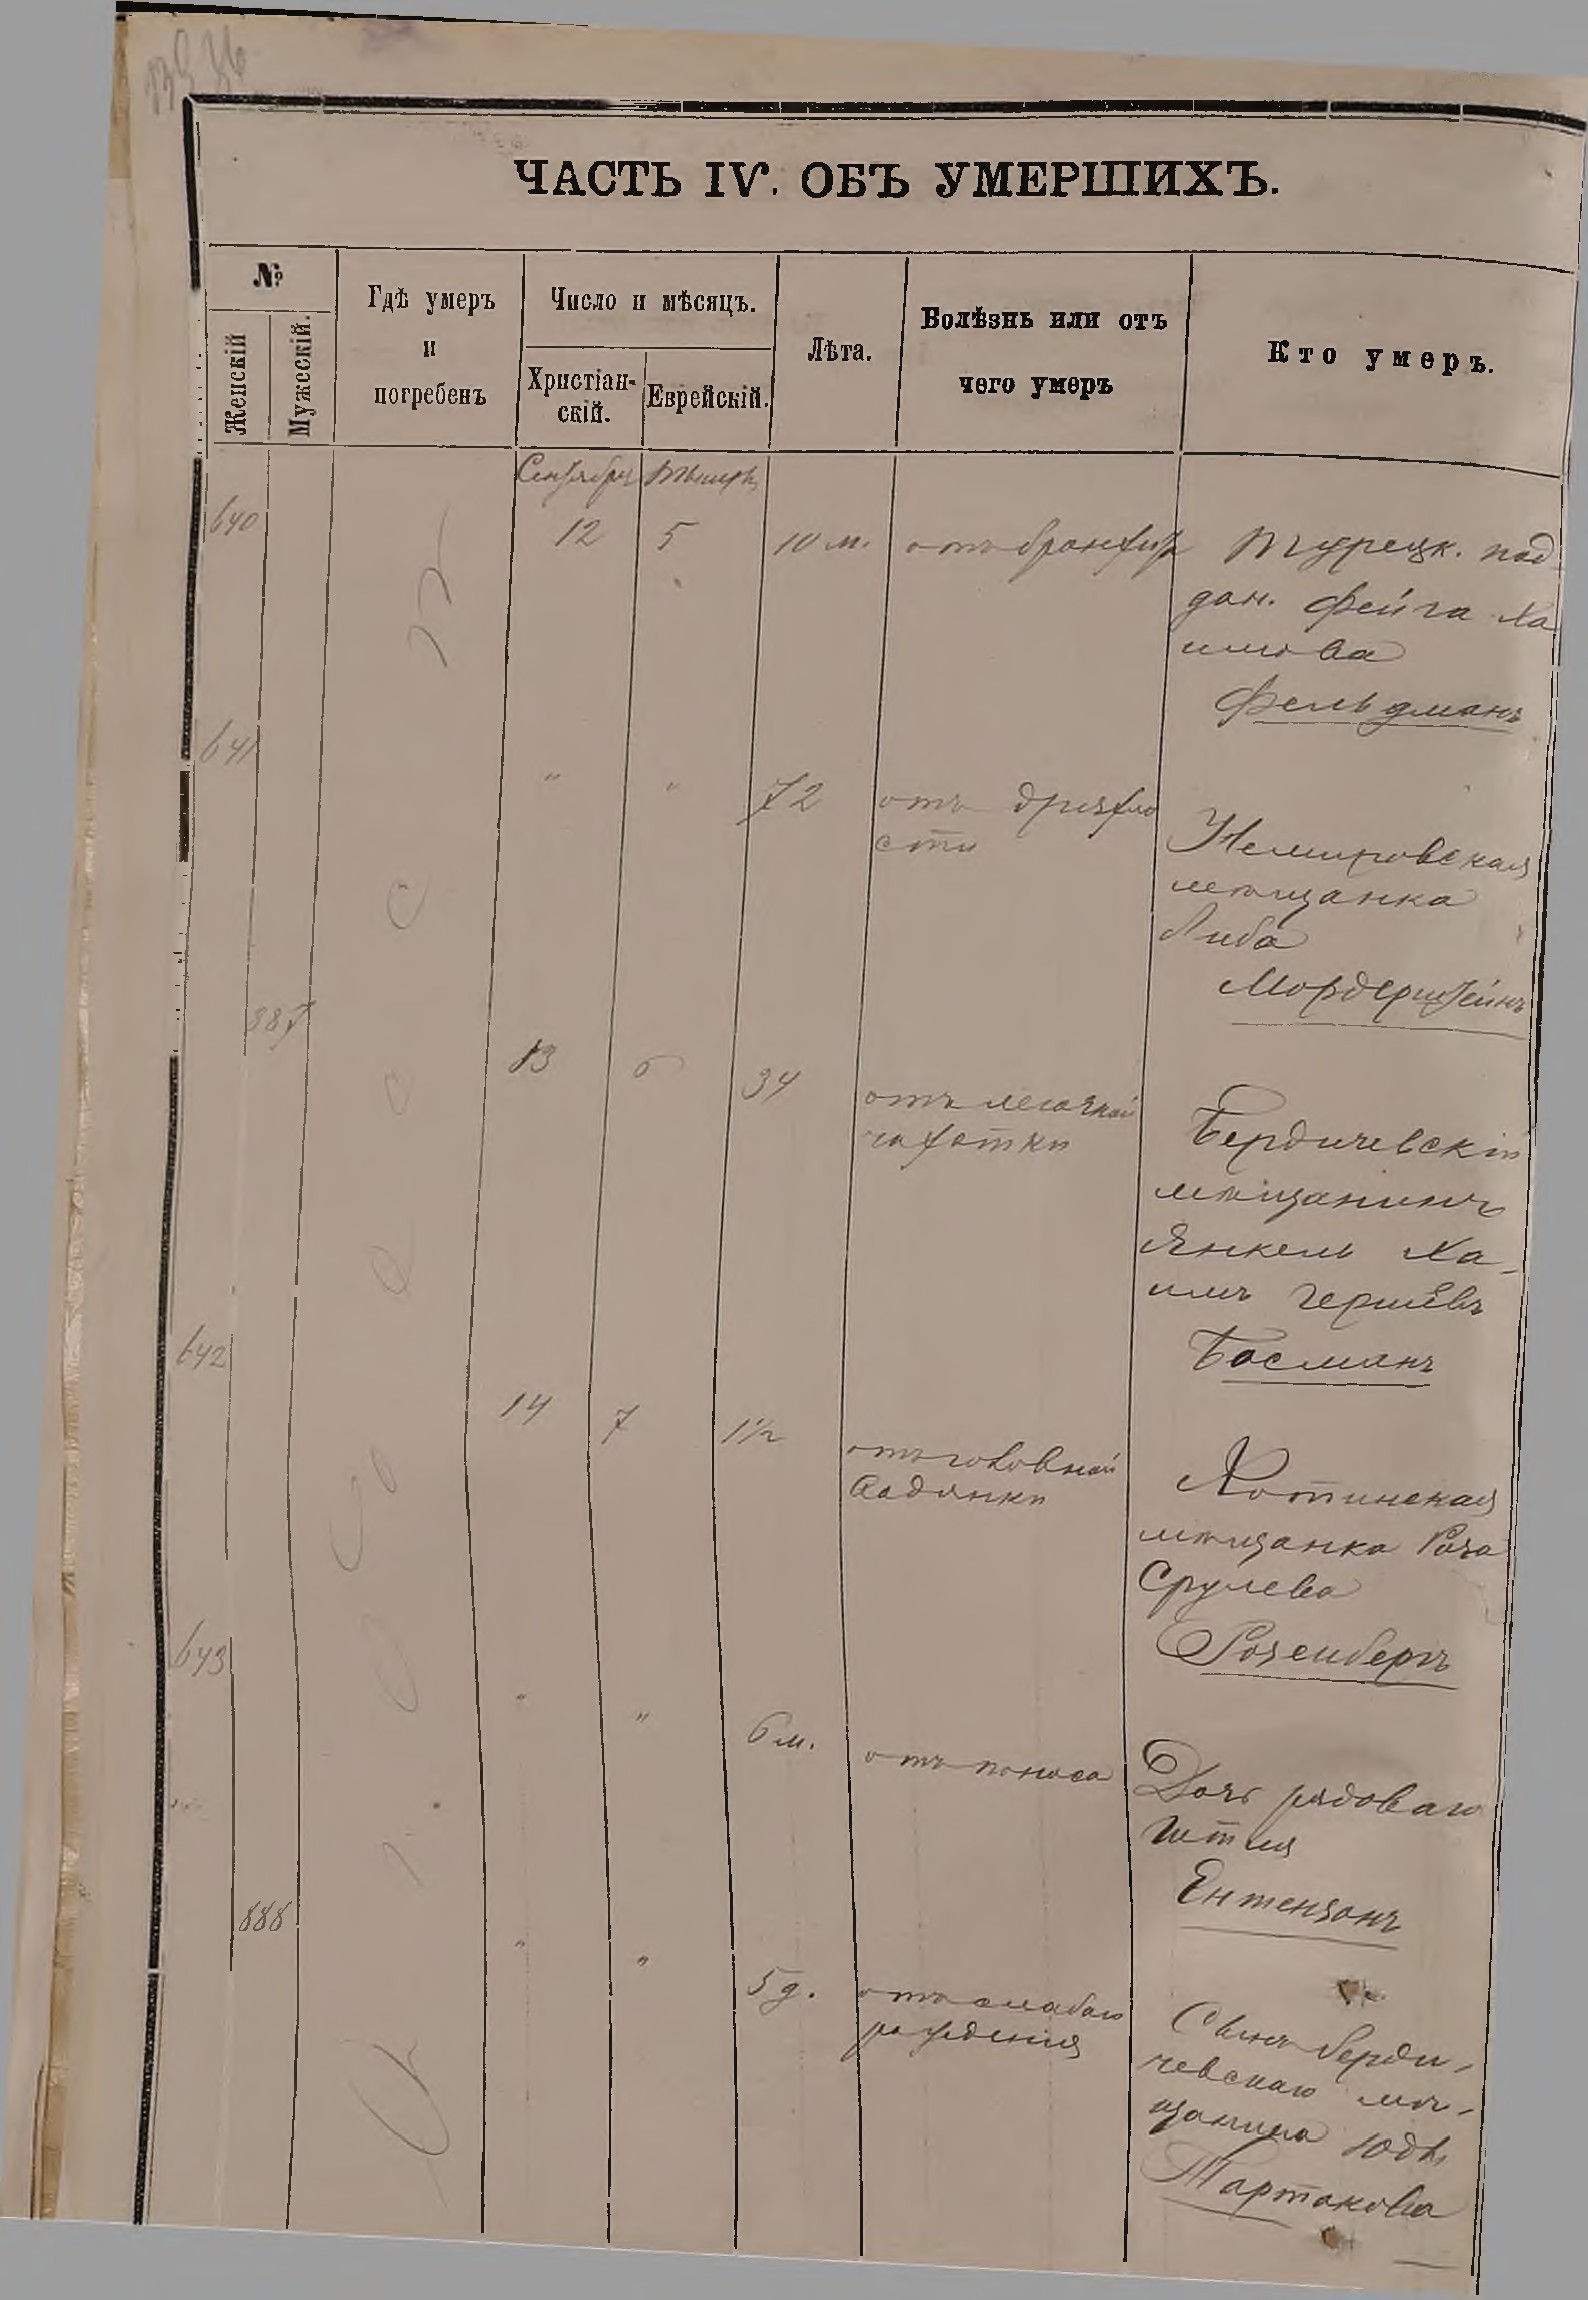 ЧАСТЬ IV. ОБЪ УМЕРШИХЪ.
№
Женскій
Мужескій.
Гдѣ умеръ
и
погребенъ
Число и мѣсяцъ.
Христіан-
скій.
Еврейскій.
Лѣта.
Болѣзнь или отъ
чего умеръ
Кто умеръ.
Сентябрь Тышри
640 12 5 10 м. отъ бронхит Турецк. под
дан. Фейга Ха
имова
Фельдманъ
641 " " 72 отъ дряхло
сти
Немировская
мѣщанка
Либа
Мордерштейнъ
887 13 6 34 отъ легочной
чахотки
Бердичевскій
мѣщанинъ
Янкель Ха-
имъ Гершевъ
Босманъ
642 14 7 1½ отъ головной
водянки
Хотинская
мѣщанка Роза
Срулева
Розенбергъ
643 " " 6 м. отъ поноса Дочь рядоваго
Гитля
Ентензонъ
888 " " 5 д. отъ слабаго
рожденія
Сынъ Берди-
чевскаго мѣ-
щанина Юдѣ
Тартаковa